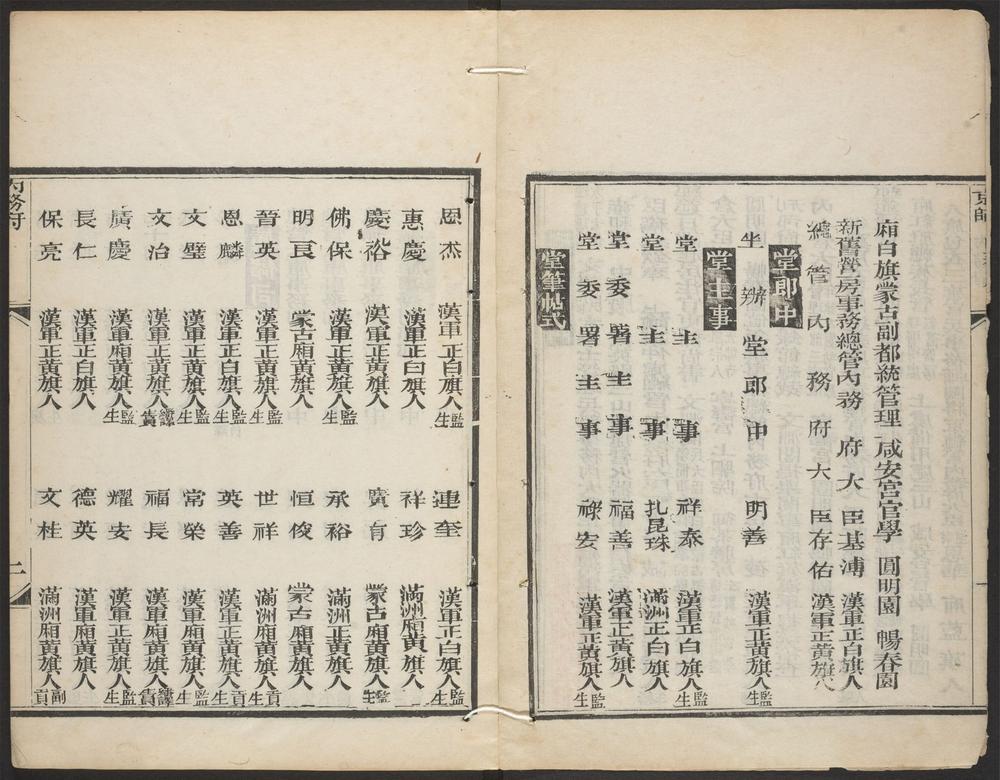 京師
廂白旗蒙古副都統管理 咸安宮官學 圓明園 暢春園
新舊營房事務總管內務府大臣基溥 漢軍正白旗人
總管內務府大臣存佑 漢軍正黃旗人
堂郎中
坐辦堂郎中 明善 漢軍正黃旗人 監生
堂主事
堂主事 祥泰 漢軍正白旗人 監生
堂主事 扎昆珠 滿洲正白旗人
堂委署主事 福善 漢軍正黃旗人
堂委署主事 祿安 漢軍正黃旗人 監生
堂筆帖式
恩杰 漢軍正白旗人 監生 連奎 漢軍正白旗人 監生
惠慶 漢軍正白旗人 祥珍 滿洲廂黃旗人
慶裕 漢軍正黃旗人 廣有 蒙古廂黃旗人 監生
佛保 漢軍正黃旗人 監生 承裕 滿洲正黃旗人
明良 蒙古廂黃旗人 恒俊 蒙古廂黃旗人
晉英 漢軍正黃旗人 監生 世祥 滿洲廂黃旗人 貢生
恩麟 漢軍正白旗人 監生 英善 漢軍正白旗人 貢生
文璧 漢軍正黃旗人 監生 常榮 漢軍正黃旗人 監生
文治 漢軍正黃旗人 繙貢 福長 漢軍廂黃旗人 繙貢
廣慶 漢軍廂黃旗人 監生 耀安 漢軍正黃旗人 監生
長仁 漢軍正白旗人 德英 漢軍正黃旗人
保亮 漢軍正黃旗人 文桂 滿洲廂黃旗人 副貢
內務府
二